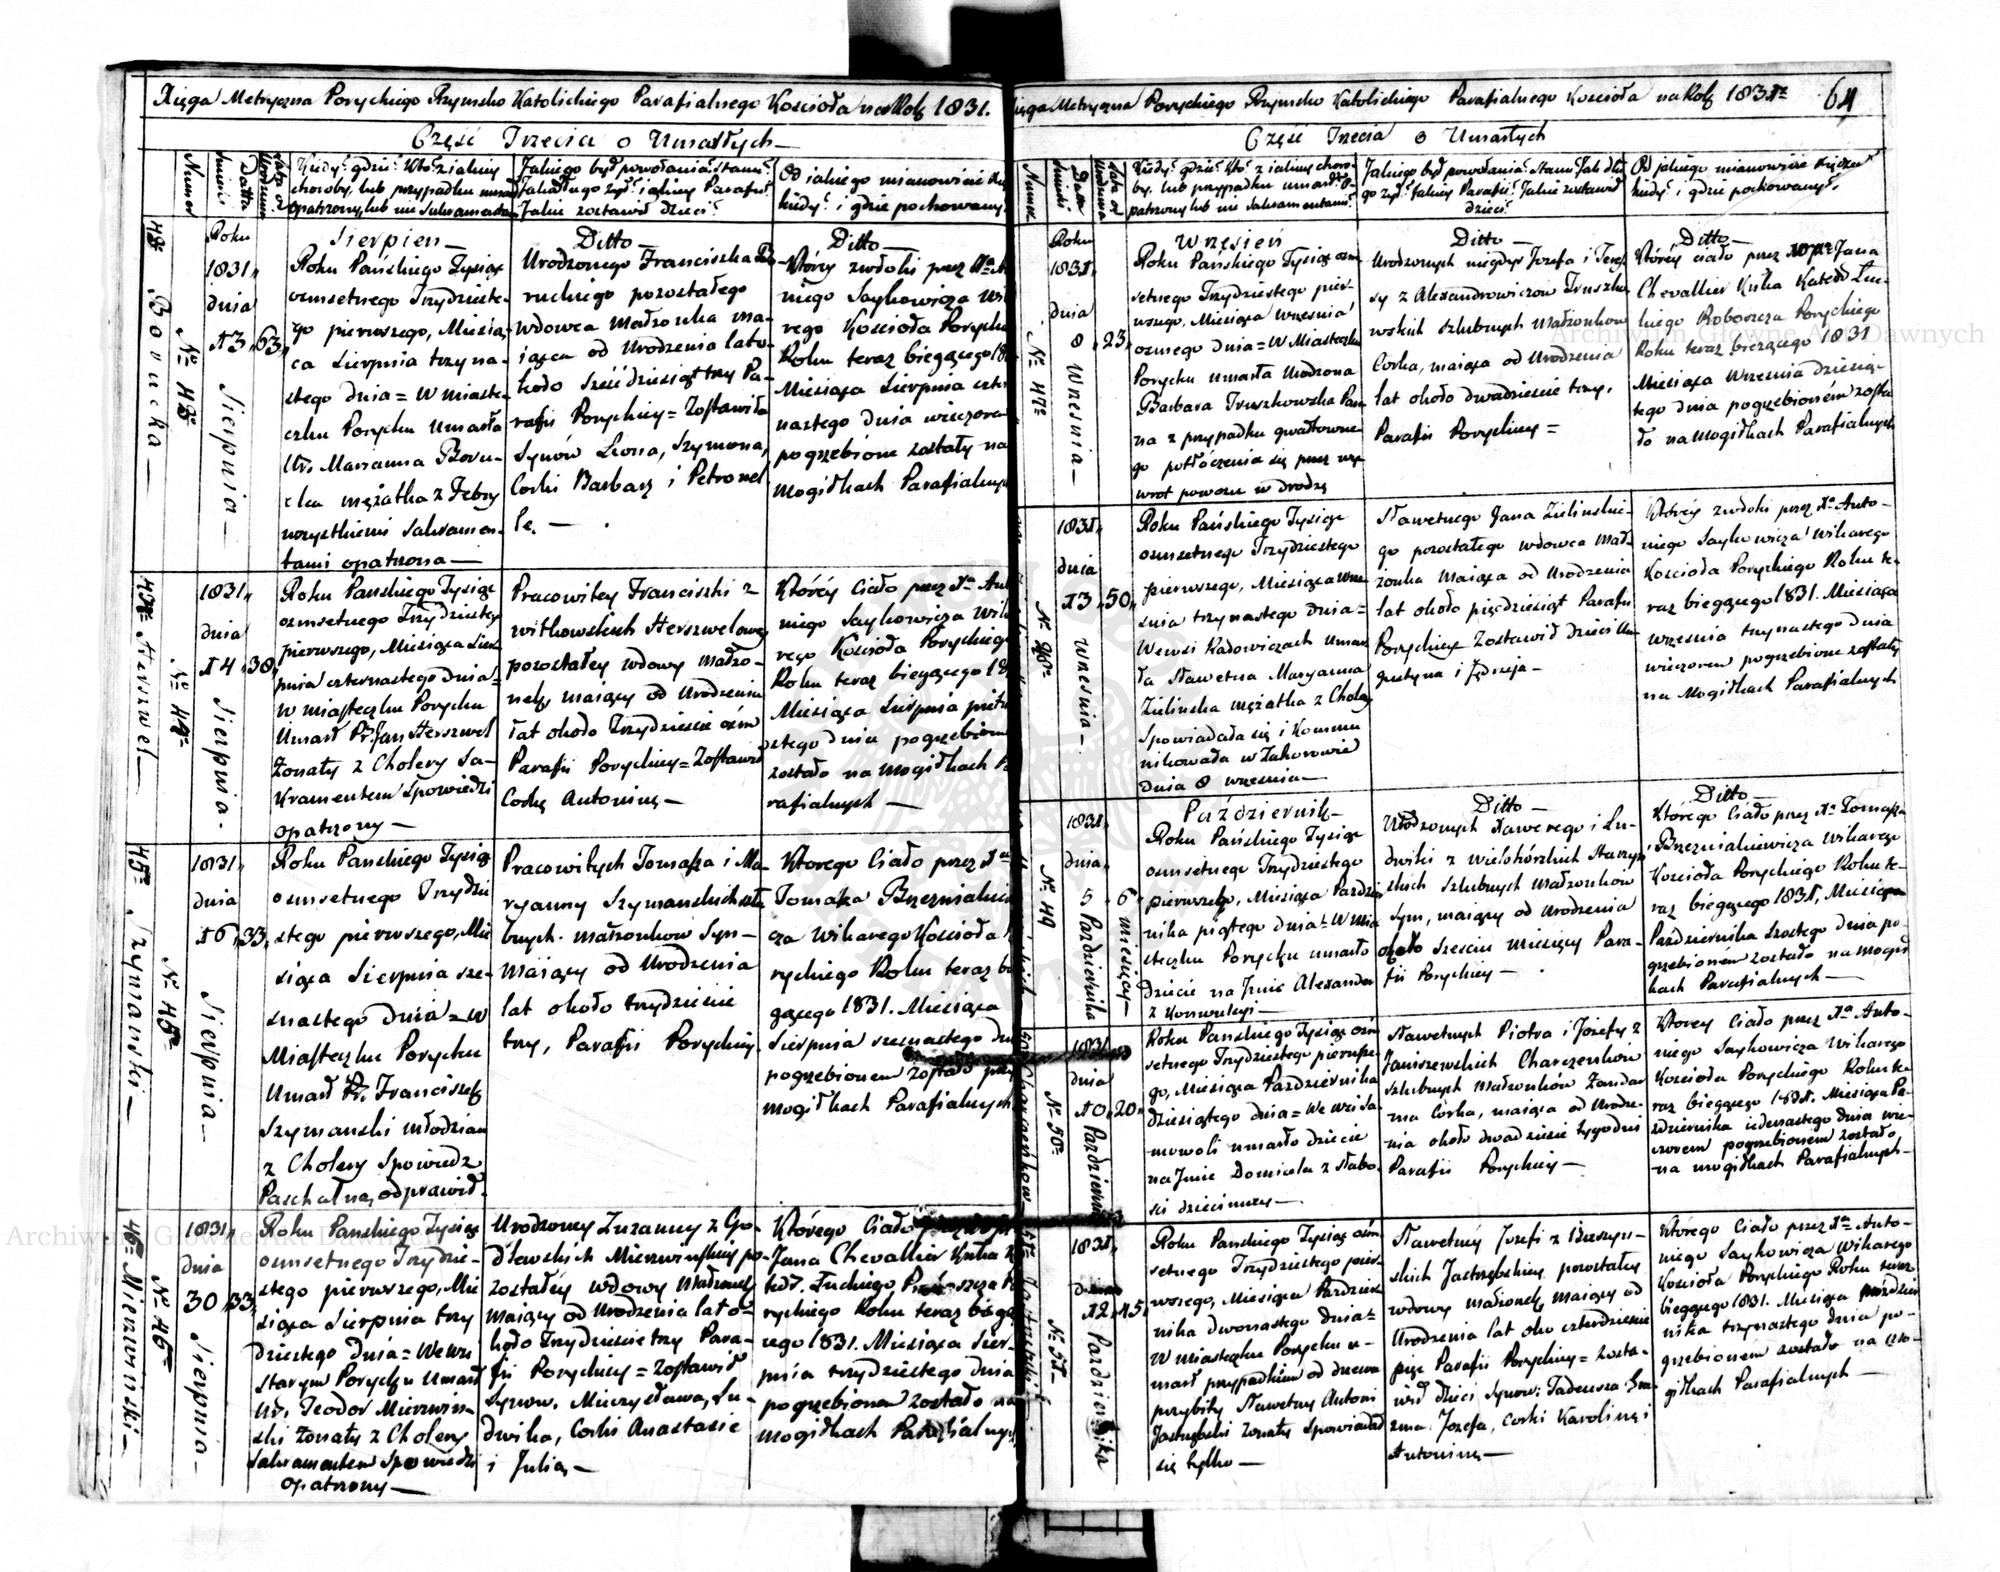 Xięga Metryczna Poryckiego Rzymsko Katolickiego Parafialnego Kościoła na Rok 1831.
Część Trzecia o Umarłych
Numer
Datta śmierci
Kiedy? gdzie? Kto? z jakiey
choroby, lub przypadku umarł
opatrzony lub nie Sakramentami
Jakiego był powołania? Stanu?
Jak długo żył? i jakiey Parafii?
Jakie zostawił dzieci?
Od jakiego mianowicie
kiedy? i gdzie pochowany
43
Borucka
No 43
Roku
1831
dnia
13
Sierpnia
63
Sierpień
Roku Pańskiego Tysiąc
ośmsetnego Trzydzieste-
go pierwszego, Miesią-
ca Sierpnia trzyna-
stego dnia = W miaste-
czku Porycku Umarła
Ur. Marianna Boru-
cka mężatka z Febry
wszystkiemi Sakramen-
tami opatrzona
Ditto
Urodzonego Franciszka Bo-
ruckiego pozostałego
wdowca małżonka ma-
iąca od Urodzenia lat o-
koło sześćdziesiąt trzy Pa-
rafii Poryckiey = Zostawiła
Synów Leona, Szymona,
Corki Barbarę i Petronel
le.
Ditto
Którey zwłoki przez
niego Saykowicza Wi
rego Kościoła Porycki
Roku teraz biegącego 18
Miesiąca Sierpnia czter
nastego dnia wieczorem
pogrzebione zostały na
mogiłkach Parafialnych
44
Herszwel
No 44
1831
dnia
14
Sierpnia
38
Roku Pańskiego Tysiąc
ośmsetnego Trzydziesteg
pierwszego, Miesiąca Sier
pnia czternastego dnia =
w miasteczku Porycku
Umarł Pr. Jan Herszwel
Żonaty z Cholery Sa-
kramentem Spowiedzi
opatrzony
Pracowitey Franciszki z
Witkowskich Herszwelowey
pozostałey wdowy małżo-
nek, maiący od Urodzenia
lat około Trzydzieście ośm
Parafii Poryckiey = Zostawił
Corkę Antoninę
Którey Ciało przez Xa Ant
niego Saykowicza Wik
rego Kościoła Poryckiego
Roku teraz biegącego 18
Miesiąca Sierpnia pietn
stego dnia pogrzebione
zostało na mogiłkach Pa
rafialnych
45
Szymanski
No 45
1831
dnia
16
Sierpnia
33
Roku Pańskiego Tysiąc
ośmsetnego Trzydzie
stego pierwszego, Mie
siąca Sierpnia sze-
snastego dnia = w
Miasteczku Porycku
Umarł Pr. Franciszek
Szymanski młodzian
z Cholery Spowiedz
Paschalną odprawił
Pracowitych Tomasza i Ma-
ryanny Szymanskich szlu
bnych małżonkow Syn
maiący od Urodzenia
lat około trzydzieście
trzy, Parafii Poryckiey.
Ktorego Ciało przez Xa
Tomasza Brzezniakiewi
cza Wikarego Kościoła
ryckiego Roku teraz bie
gącego 1831. Miesiąca
Sierpnia szesnastego dn
pogrzebionem zostało przy
mogiłkach Parafialnych
46
Mierzwinski
No 46
1831
dnia
30
Sierpnia
33
Roku Pańskiego Tysiąc
ośmsetnego Trzydzie-
stego pierwszego, Mie
siąca Sierpnia trzy
dziestego Dnia = We wsi
starym Porycku Umarł
Ur. Teodor Mierzwin-
ski Żonaty z Cholery
Sakramentem Spowiedzi
opatrzony
Urodzoney Zuzanny z Go-
dlewskich Mierzwinskiey po-
zostałey wdowy Małżonek
maiący od Urodzenia lat o-
koło Trzydzieście trzy Para-
fii Poryckiey = Zostawił
Synow. Mieczysława, Lu-
dwika, Corki Anastasie
i Julią
Którego Ciało
Jana Chevallier Kuka K
ted. Łuckiego Proboszcza Po
ryckiego Roku teraz biegą
cego 1831. Miesiąca Sier-
pnia trzydziestego Dnia
pogrzebione zostało na
mogiłkach Parafialnych
Xięga Metryczna Poryckiego Rzymsko Katolickiego Parafialnego Kościoła na Rok 1831
64
Część Trzecia o Umarłych
Numer
Datta śmierci
Lata od Urodzenia
Kiedy? gdzie? Kto? z jakiey choro-
by, lub przypadku umarł? O-
patrzony lub nie Sakramentami?
Jakiego był powołania? Stanu? Jak dłu
go żył? Jakiey Parafii? Jakie zostawił
dzieci?
Od jakiego mianowicie Xiędza
kiedy? i gdzie pochowany?
No 47
Roku
1831
dnia
8
Września
23
Wrzesień
Roku Pańskiego Tysiąc ośm
setnego Trzydziestego pier-
wszego, Miesiąca Września
ósmego Dnia = W Miasteczku
Porycku Umarła Urodzona
Barbara Truszkowska Pan
na z przypadku gwałtowne
go potłóczenia się przez wy
wrot powozu w drodzę
Ditto
Urodzonych niegdyś Jozefa i Tere
sy z Alexandrowiczow Truszko
wskich szlubnych Małżonkow
Corka, maiąca od Urodzenia
lat około dwadzieście trzy,
Parafii Poryckiey =
Ditto
Którey ciało przez Jana
Chevallier Kuka Kated. Łuc-
kiego Proboszcza Poryckiego
Roku teraz bieżącego 1831
Miesiąca Września dziesią-
tego dnia pogrzebionem zosta
ło na mogiłkach Parafialnych
No 48
1831
dnia
13
Września
50
Roku Pańskiego Tysiąc
ośmsetnego Trzydziestego
pierwszego, Miesiąca Wrze-
śnia trzynastego dnia =
We wsi Radowiczach Umar
ła Sławetna Maryanna
Zielinska mężatka z Chole
Spowiadała się i Kommu
nikowała w Zahorowie
Dnia 8 września
Sławetnego Jana Zielinskie-
go pozostałego wdowca Mał-
żonka maiąca od Urodzenia
lat około pięćdziesiąt Parafii
Poryckiey Zostawił dzieci Au
gustyna i Jędrzeja
Którey zwłoki przez Xa Anto-
niego Saykowicza Wikarego
Kościoła Poryckiego Roku te-
raz biegącego 1831. Miesiąca
Września trzynastego dnia
wieczorem pogrzebione zostały
na Mogiłkach Parafialnych
No 49
1831
dnia
5
Października
6 miesięcy
Październik
Roku Pańskiego Tysiąc
ośmsetnego Trzydziestego
pierwszego, Miesiąca Paździer
nika piątego dnia = W Mia
steczku Porycku umarło
dziecie na Jmie Alexander
z Konwulsyi
Ditto
Urodzonych Xawerego i Lu-
dwiki z Wielohórskich Starzyń
skich szlubnych Małżonków
Syn, maiący od Urodzenia
około Sześciu miesięcy Para-
fii Poryckiey
Ditto
Którego Ciało przez Xa Tomasza
Brzezniakiewicza Wikarego
Kościoła Poryckiego Roku te-
raz biegącego 1831, Miesiąca
Października szóstego dnia po-
grzebionem zostało na mogił
kach Parafialnych
50 Charczenkow
No 50
1831
dnia
10
Października
20
Roku Pańskiego Tysiąc ośm
setnego Trzydziestego pierwsze-
go, Miesiąca Października
dziesiątego dnia = We wsi Sa-
mowoli umarło dziecie
na Jmie Domicela z słabo-
ści dziecinney
Sławetnych Piotra i Józefy z
Janiszewskich Charczenków
szlubnych Małżonków Żandar
ma Córka, maiąca od Urodze-
nia około dwadzieście tygodni
Parafii Poryckiey
Ktorey Ciało przez Xa Anto-
niego Saykowicza Wikarego
Kościoła Poryckiego Roku te-
raz biegącego 1831. Miesiąca Pa-
ździernika jedenastego dnia wie-
czorem pogrzebionem zostało
na mogiłkach Parafialnych
51 Jastrzębski
No 51
1831
dnia
12
Października
45
Roku Pańskiego Tysiąc ośm
setnego Trzydziestego pier-
wszego, Miesiąca Paździer
nika dwonastego dnia =
W miasteczku Porycku u-
marł przypadkiem od drzewa
przybity Sławetny Antoni
Jastrzębski Żonaty Spowiadał
się tylko
Sławetney Jozefi z
skich Jastrzębskiey pozostałey
wdowy małżonek, maiący od
Urodzenia lat oko czterdzieście
pięc Parafii Poryckiey = Zosta-
wił dzieci Synow: Tadeusza
Jozefa, Corki Karolinę i
Antoninę
Którego Ciało przez Xa Anto-
niego Saykowicza Wikarego
Kościoła Poryckiego Roku teraz
biegącego 1831. Miesiąca Paździer
nika trzynastego dnia po-
grzebionem zostało na mo-
giłkach Parafialnych
Archiwum Główne Akt Dawnych
Archiwum Główne Akt Dawnych